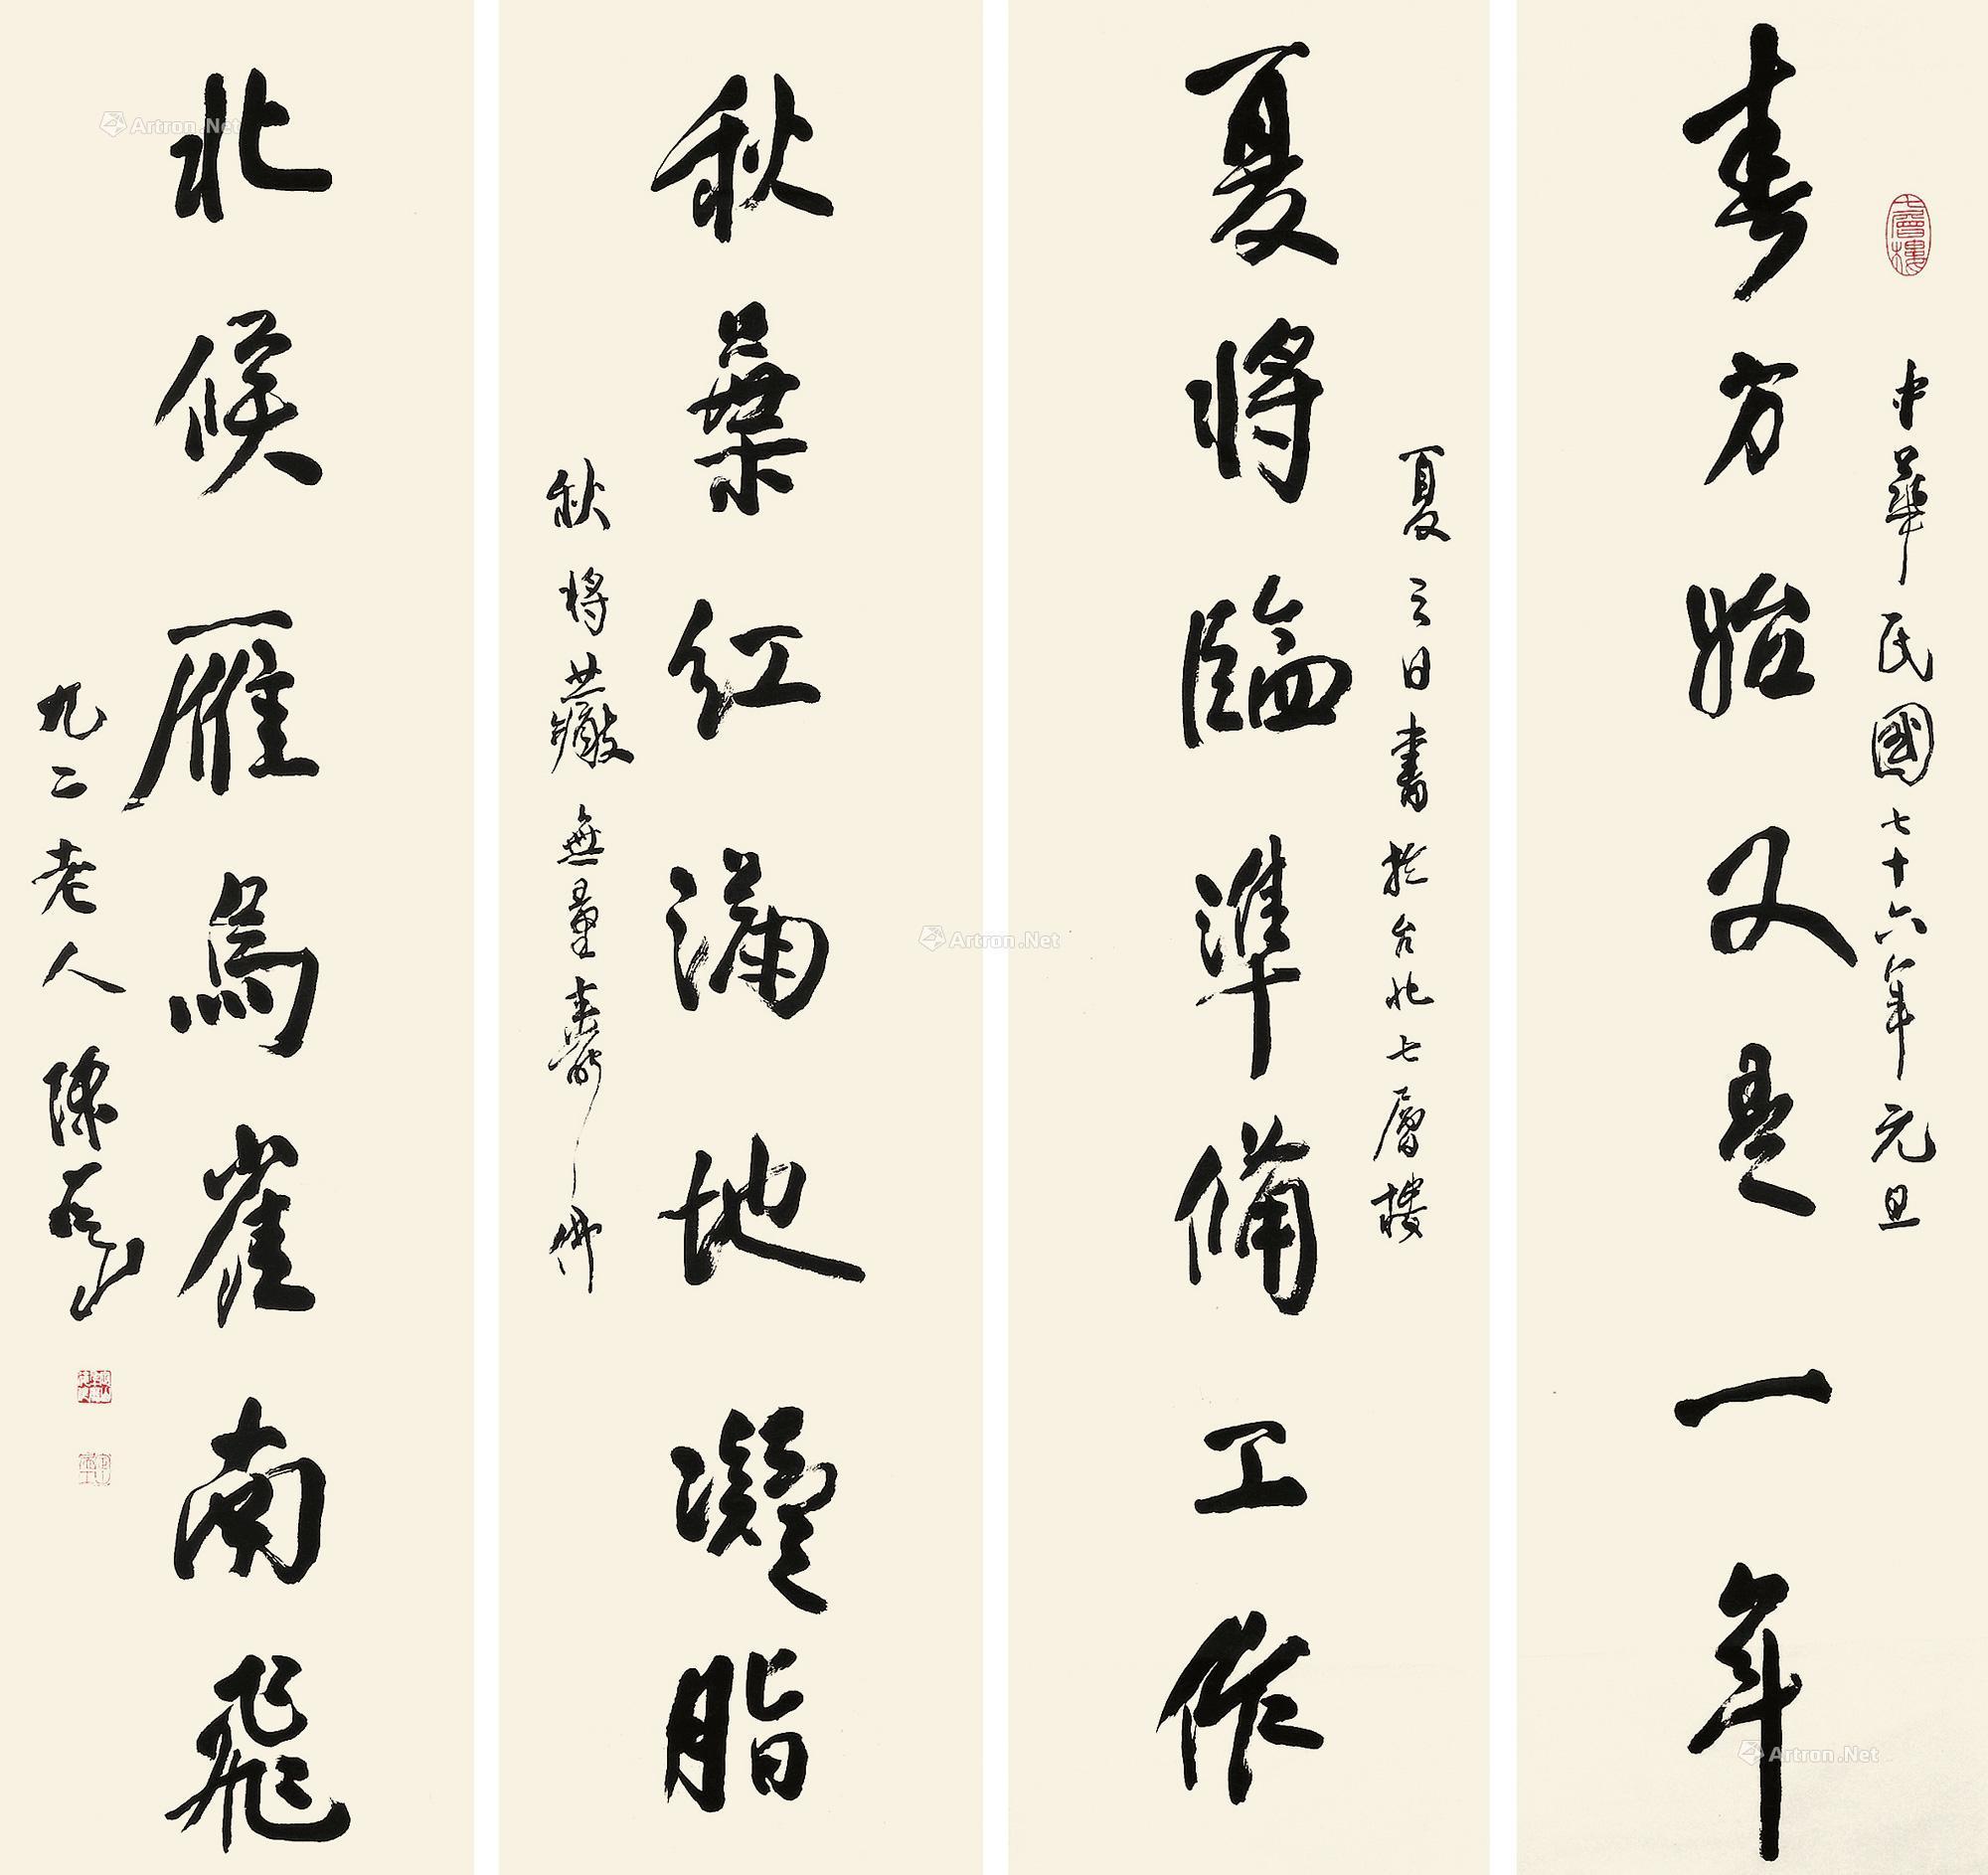 春方始又是一年
中華民國七十六年元旦
七層樓
夏將臨準備工作
夏之日書於台北七層樓
秋葉紅滿地凝脂
秋將藏無量壽佛
北候雁鳥雀南飛
九二老人陳
Artron.Net
Artron.Net
Artron.Net